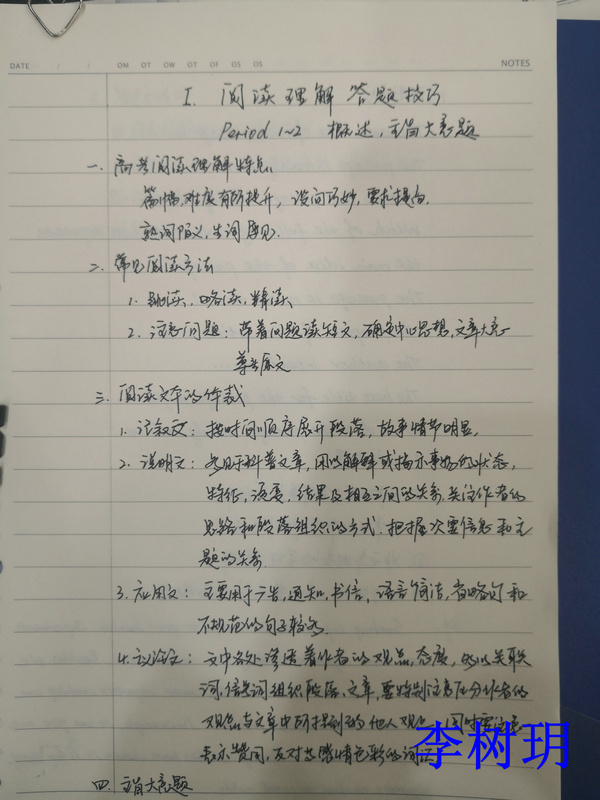 DATE / / OM OT OW OT OF OS OS NOTES
I. 阅读理解答题技巧
Period 1~2 概述,主旨大意题
一. 高考阅读理解特点:
篇幅,难度有所提升,设问巧妙,要求提高.
熟词陌义,生词屡见.
二. 常见阅读方法
1. 跳读、略读,精读、
2. 注意问题:带着问题读短文,确定中心思想,文章大意
尊长原文
三. 阅读文本的体裁
1. 记叙文:按时间顺序展开段落,故事情节明显.
2. 说明文:多见于科普文章,用以解释或揭示事物的状态,
特征,演变,结果及相互之间的关系,关注作者的
思路和段落组织的方式.把握次要信息和主
题的关系
3. 应用文:主要用于广告,通知,书信,语言简洁,省略句和
不规范的句子较多.
4. 议论文:文中多处渗透着作者的观点,态度,的以关联
词,信号词组织段落、文章,要特别注意区分作者的
观点与文章中所提到的他人观点 同时要注意
表示赞同,反对等感情色彩的词汇
李树玥
四. 主旨大意题